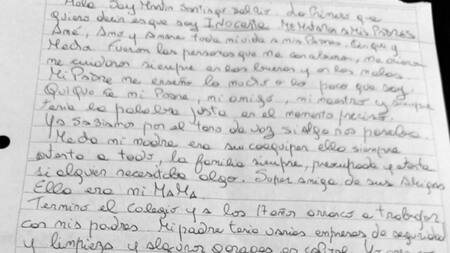 Hola Soy Martin Santiago del Rio. Lo Primero que
quiero decir es que soy INOCENTE. NO MATÉ A MIS PADRES
Amé, Amo y Amare toda mi vida a mis Padres. Enrique y
Maria fueron las personas que me
me cuidaron siempre en las buenas y en las malas.
Mi Padre me enseño lo mucho o lo poco que soy.
Quique es mi Padre, mi amigo, mi maestro y siempre
tenia la palabra justa en el momento preciso.
Ya sabiamos por el tono de voz si algo nos pasaba.
mi madre era su coequiper ella siempre
atenta a todo, la familia siempre, preocupada y atenta
si alguien necesitaba algo. Super amiga de sus Amigas
Ella era mi MaMa.
Termino el colegio y a los 17 años arranco a trabajar
con mis padres. Mi padre tenia varias empresas de seguridad
y limpieza y algunos garages en